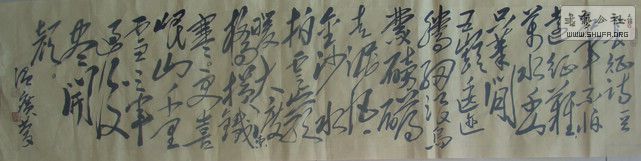 长征诗 红
军不怕
远征难
万水千山
只等闲
五岭逶迤
腾细浪乌
蒙磅礴
走泥丸
金沙水
拍云崖
暖大渡
桥横铁索
寒更喜
岷山千里
雪三军
过后
尽开
颜
书艺公社
WWW.SHUFA.ORG